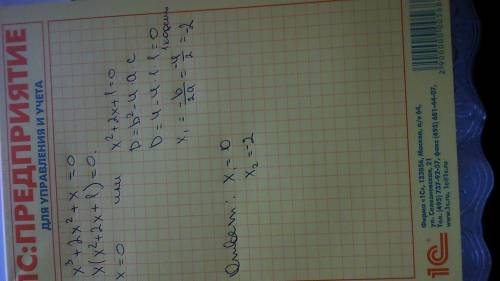 1С:ПРЕДПРИЯТИЕ
ДЛЯ УПРАВЛЕНИЯ И УЧЕТА
x³+2x²+x=0
x(x²+2x+1)=0.
x=0 или x²+2x+1=0
D=b²-4·a·c
D=4-4·1·1=0
1 корень
x₁=-b/2a=-4/2=-2
Ответ: x₁=0
x₂=-2
1С
Фирма «1С», 123056, Москва, а/я 64,
ул. Селезневская, 21
Тел. (495) 737-92-57, факс (495) 681-44-07,
www.1c.ru, 1c@1c.ru